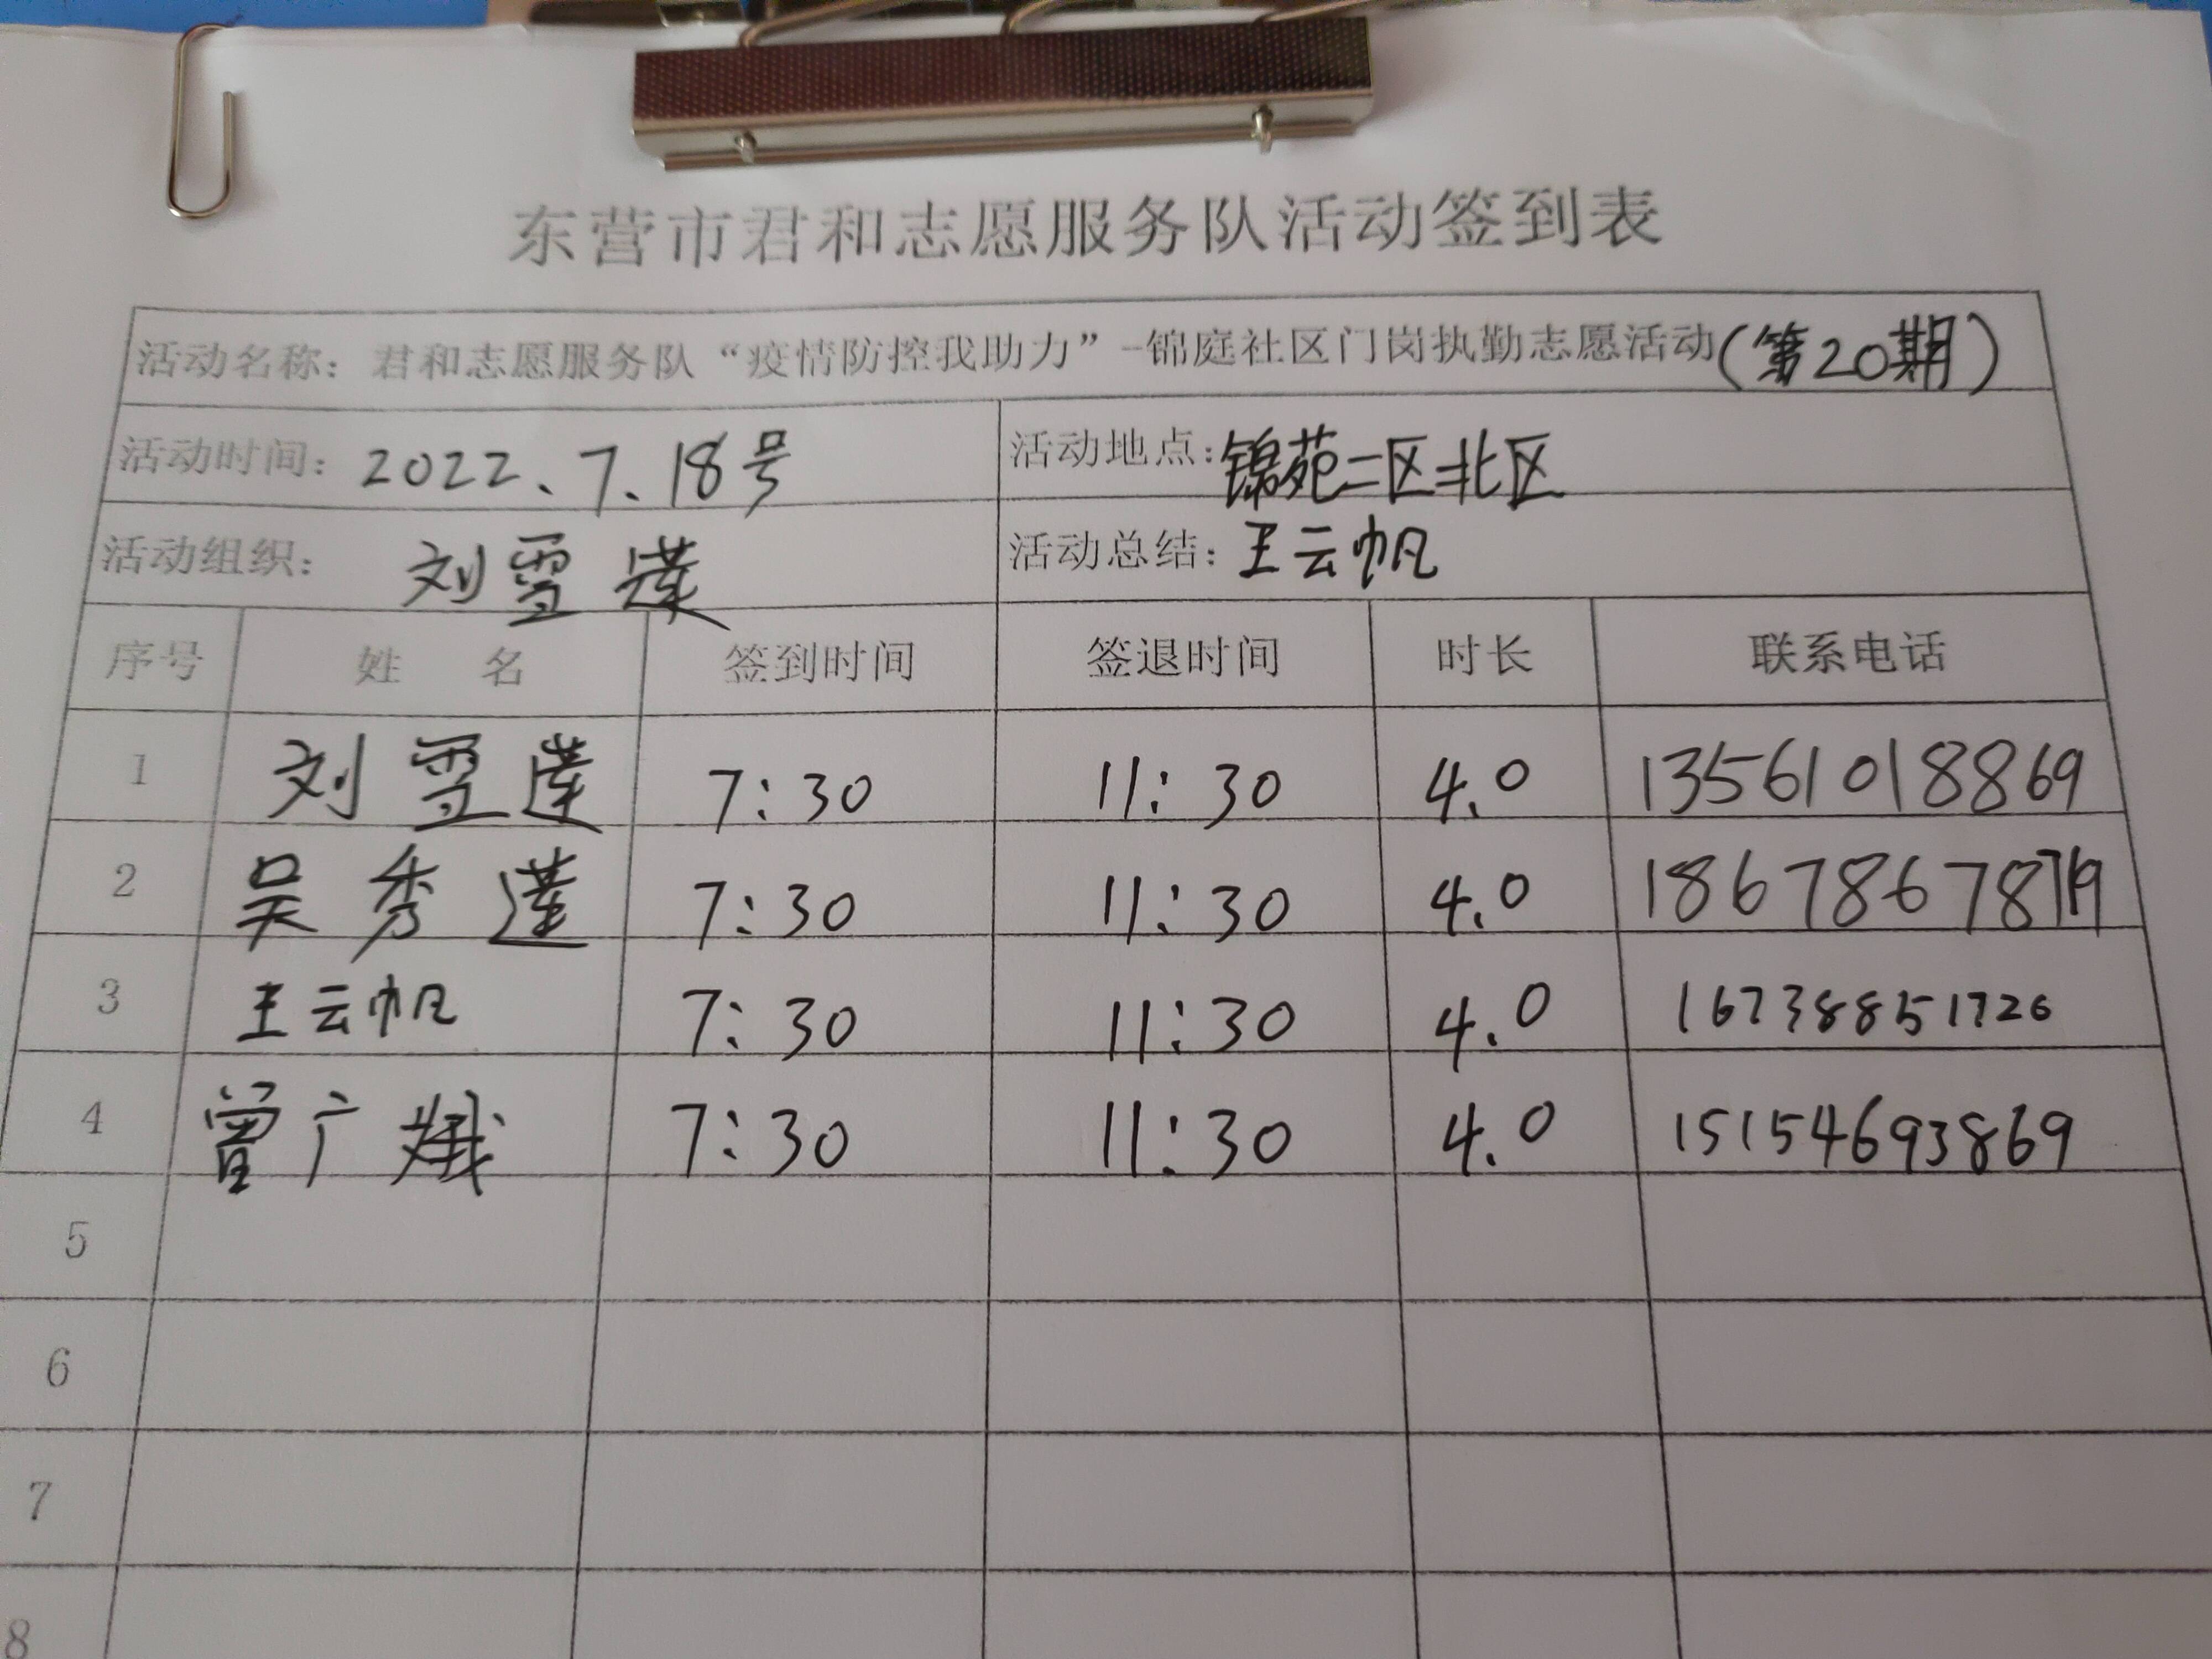 东营市君和志愿服务队活动签到表
活动名称：君和志愿服务队“疫情防控我助力”-锦庭社区门岗执勤志愿活动（第20期）
活动时间：2022、7、18号 活动地点：锦苑二区北区
活动组织：刘雪莲 活动总结：王云帆
序号 姓 名 签到时间 签退时间 时长 联系电话
1 刘雪莲 7:30 11:30 4.0 13561018869
2 吴秀莲 7:30 11:30 4.0
3 王云帆 7:30 11:30 4.0 16738851726
4 曾广娥 7:30 11:30 4.0 15154693869
5
6
7
8